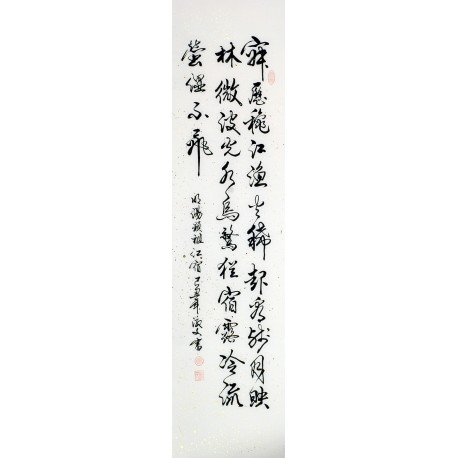 寂歷穐江漁火稀起看残月映
林微波光水鳥驚犹宿露冷流
螢湿不飛
明湯顯祖江宿 己丑年 文書